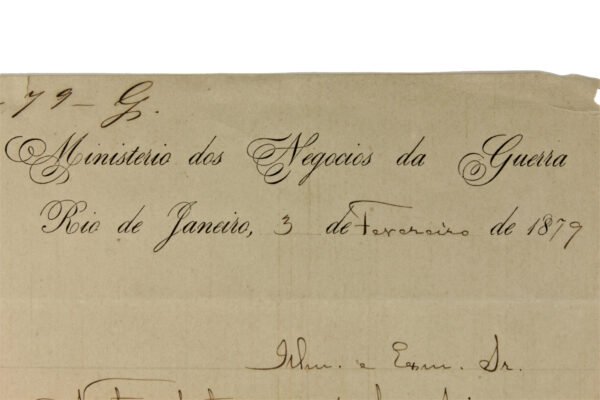 79 - G.
Ministerio dos Negocios da Guerra
Rio de Janeiro, 3 de Fevereiro de 1879
Illm. e Exm. Sr.